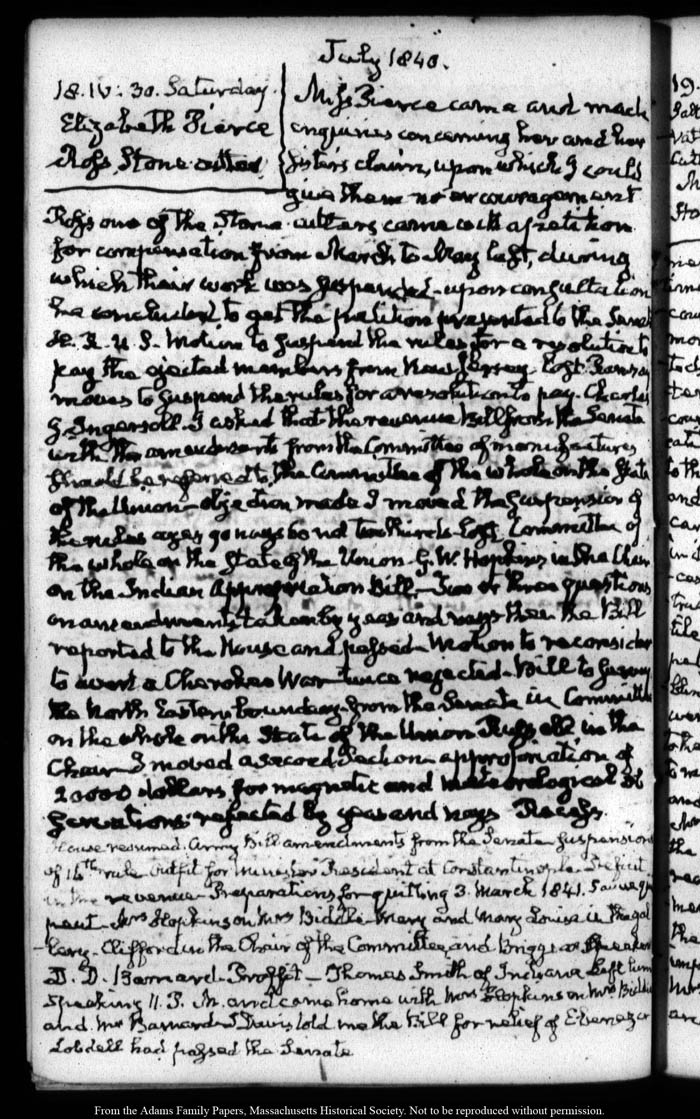 July 1840.
18. IV: 30. Saturday.
Elizabeth Pierce
Ross, Stone-cutter
Miss Pierce came and made
enquiries concerning her and her
Sister's claim, upon which I could
give them no encouragement
Ross one of the Stone-cutters came with a petition
for compensation from March to May last, during
which their work was suspended - upon consultation
he concluded to get the petition presented to the Senate
H. R. U. S. Motion to suspend the rules for a resolution to
pay the ejected members from New Jersey. Lost. Ramsay
moves to suspend the rules for a resolution to pay Charles
J. Ingersoll. I asked that the revenue Bill from the Senate
with the amendments from the Committee of manufactures
should be referred to the Committee of the whole on the State
of the Union - objection made I moved the suspension of
the rules ayes 90 nays 60 not two thirds - lost. Committee of
the whole on the State of the Union. G. W. Hopkins in the Chair
on the Indian Appropriation Bill - Two or three questions
on amendments taken by yeas and nays then the Bill
reported to the House and passed - Motion to reconsider
to avert a Cherokee War twice rejected - Bill to survey
the North Eastern boundary from the Senate in Committee
on the whole on the State of the Union Russell in the
Chair - I moved a second Section - appropriation of
20000 dollars for magnetic and meteorological ob
servations. rejected by yeas and nays Recess.
House resumed. Army Bill amendments from the Senate suspension
of 16th rule Outfit for Minister Resident at Constantinople. Deficit
in the revenue - Preparations for quitting 3. March 1841.
ment - Mrs Hopkinson Mrs Biddle Mary and Mary Louisa in the gal
lery - Clifford in the Chair of the Committee, and Briggs as Speaker
D. D. Barnard - Proffit - Thomas Smith of Indiana Left him
speaking 11. P. M. and came home with Mrs Hopkinson Mrs Biddle
and Mr Barnard - J Davis told me the Bill for relief of Ebenezer
Lobdell had passed the Senate
From the Adams Family Papers, Massachusetts Historical Society. Not to be reproduced without permission.